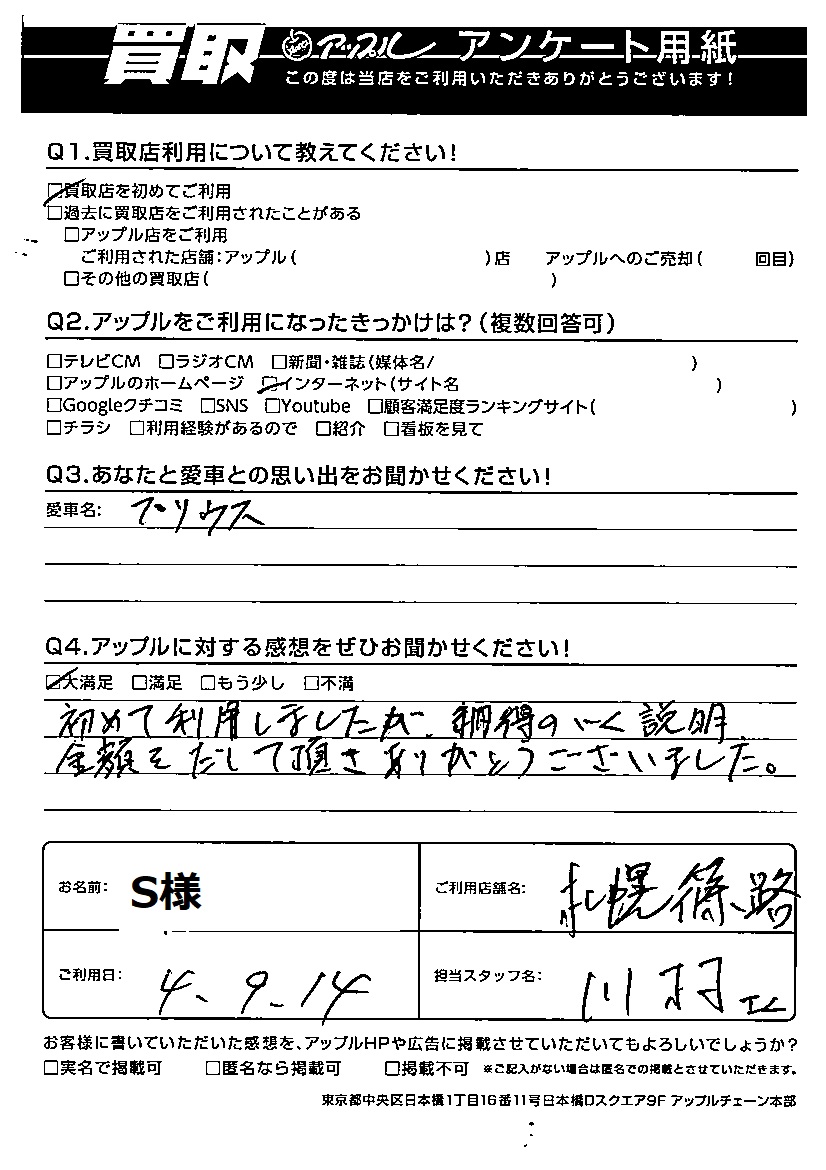 買取 アップル アンケート用紙
この度は当店をご利用いただきありがとうございます!
Q1.買取店利用について教えてください!
☑買取店を初めてご利用
□過去に買取店をご利用されたことがある
□アップル店をご利用
ご利用された店舗:アップル( )店 アップルへのご売却( 回目)
□その他の買取店( )
Q2.アップルをご利用になったきっかけは?(複数回答可)
□テレビCM □ラジオCM □新聞・雑誌(媒体名/ )
□アップルのホームページ ☑インターネット(サイト名 )
□Googleクチコミ □SNS □Youtube □顧客満足度ランキングサイト( )
□チラシ □利用経験があるので □紹介 □看板を見て
Q3.あなたと愛車との思い出をお聞かせください!
愛車名: プリウス
Q4.アップルに対する感想をぜひお聞かせください!
☑大満足 □満足 □もう少し □不満
初めて利用しましたが、納得のいく説明
金額をだして頂きありがとうございました。
お名前: S様 ご利用店舗名: 札幌篠路
ご利用日: 4.9.14 担当スタッフ名: 川村
お客様に書いていただいた感想を、アップルHPや広告に掲載させていただいてもよろしいでしょうか?
□実名で掲載可 □匿名なら掲載可 □掲載不可 ※ご記入がない場合は匿名での掲載とさせていただきます。
東京都中央区日本橋1丁目16番11号日本橋Dスクエア9F アップルチェーン本部